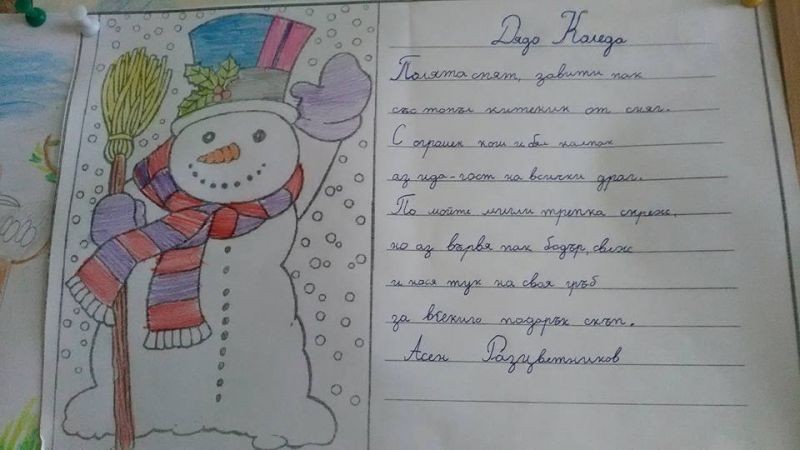 Дядо Коледа
Полята спят, завити пак
със топъл китеник от сняг.
С огромен кош и бял калпак
аз ида-гост на всички драг.
По мойте мигли трепка скреж,
но аз вървя пак бодър, свеж
и нося тук на своя гръб
за всекиго подарък скъп.
Асен Разцветников